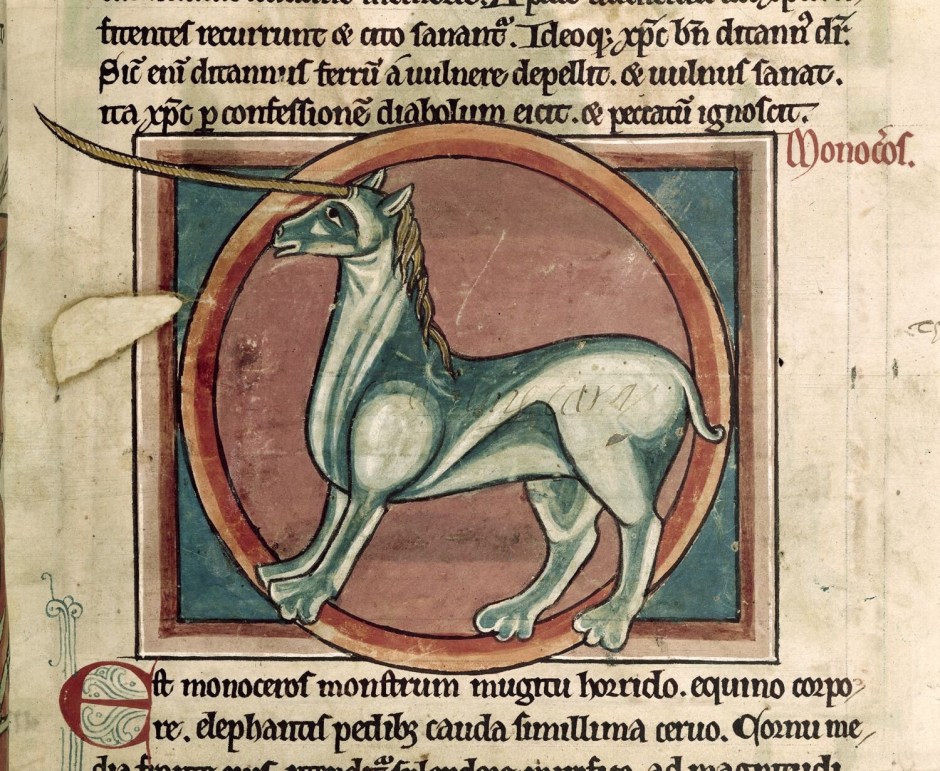 titentes recurrunt & cito sanant͛. Ideoq; xp̄c bn̄ ditann⁹ dr̄.
Sic̄ eni ditannus ferrū a uulnere depellit. & uulnus sanat.
ita xp̄c p confessionē diabolum eicit. & peccatū ignoscit.
Monoc͛os.
Est monoceros monstrum mugitu horrido. equino corpo
re. elephantis pedibꝫ cauda simillima ceruo. Cornu me
dia fronte ei⁹ ad magnitudi